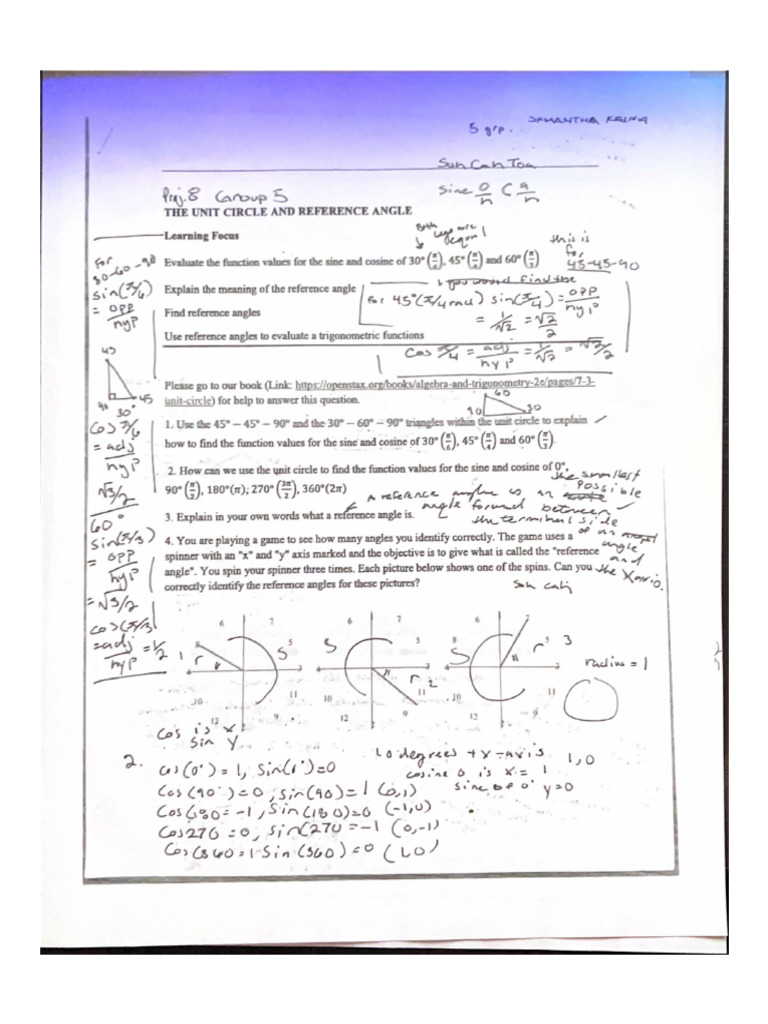 SAMANTHA
5 grp.
Soh Cah Toa
Proj. 8 Group 5
sine o/h C a/h
THE UNIT CIRCLE AND REFERENCE ANGLE
Learning Focus
Both legs are equal
this is for 45-45-90
Evaluate the function values for the sine and cosine of 30° (π/6), 45° (π/4) and 60° (π/3)
Explain the meaning of the reference angle
you would find the
For 45° (π/4 rad) sin(π/4) = opp/hyp
= 1/√2 = √2/2
Find reference angles
Use reference angles to evaluate a trigonometric functions
Cos π/4 = adj/hyp = 1/√2 = √2/2
For
30-60-90
sin(π/6)
= opp/hyp
45
90 45
30°
Cos π/6
= adj/hyp
√3/2
60°
sin(π/3)
= opp/hyp
= √3/2
cos(π/3)
= adj/hyp = 1/2
Please go to our book (Link: https://openstax.org/books/algebra-and-trigonometry-2e/pages/7-3-
unit-circle) for help to answer this question.
60
90 30
1. Use the 45° – 45° – 90° and the 30° – 60° – 90° triangles within the unit circle to explain
how to find the function values for the sine and cosine of 30° (π/6), 45° (π/4) and 60° (π/3).
2. How can we use the unit circle to find the function values for the sine and cosine of 0°,
90° (π/2), 180°(π), 270° (3π/2), 360°(2π)
3. Explain in your own words what a reference angle is.
A reference angle is an
the smallest
possible
angle formed between
the terminal side
of an
angle
and
the X axis.
4. You are playing a game to see how many angles you identify correctly. The game uses a
spinner with an "x" and "y" axis marked and the objective is to give what is called the "reference
angle". You spin your spinner three times. Each picture below shows one of the spins. Can you
correctly identify the reference angles for these pictures?
Soh cah
6 7 6 7 6 7
1 r S 5
S r 2
S r 5 3
10 11 10 11 10 11
12 9 12 9 12 9
radius = 1
Cos is x
Sin y
2.
cos(0°) = 1, Sin(1°) = 0
Cos(90°) = 0, sin(90) = 1 (0,1)
Cos(180 = -1, Sin(180) = 0 (-1,0)
Cos270 = 0, sin(270 = -1 (0,-1)
Cos(360 = 1 Sin(360) = 0 (1,0)
0 degrees +x-axis 1,0
cosine 0 is x = 1
sine of 0° y=0